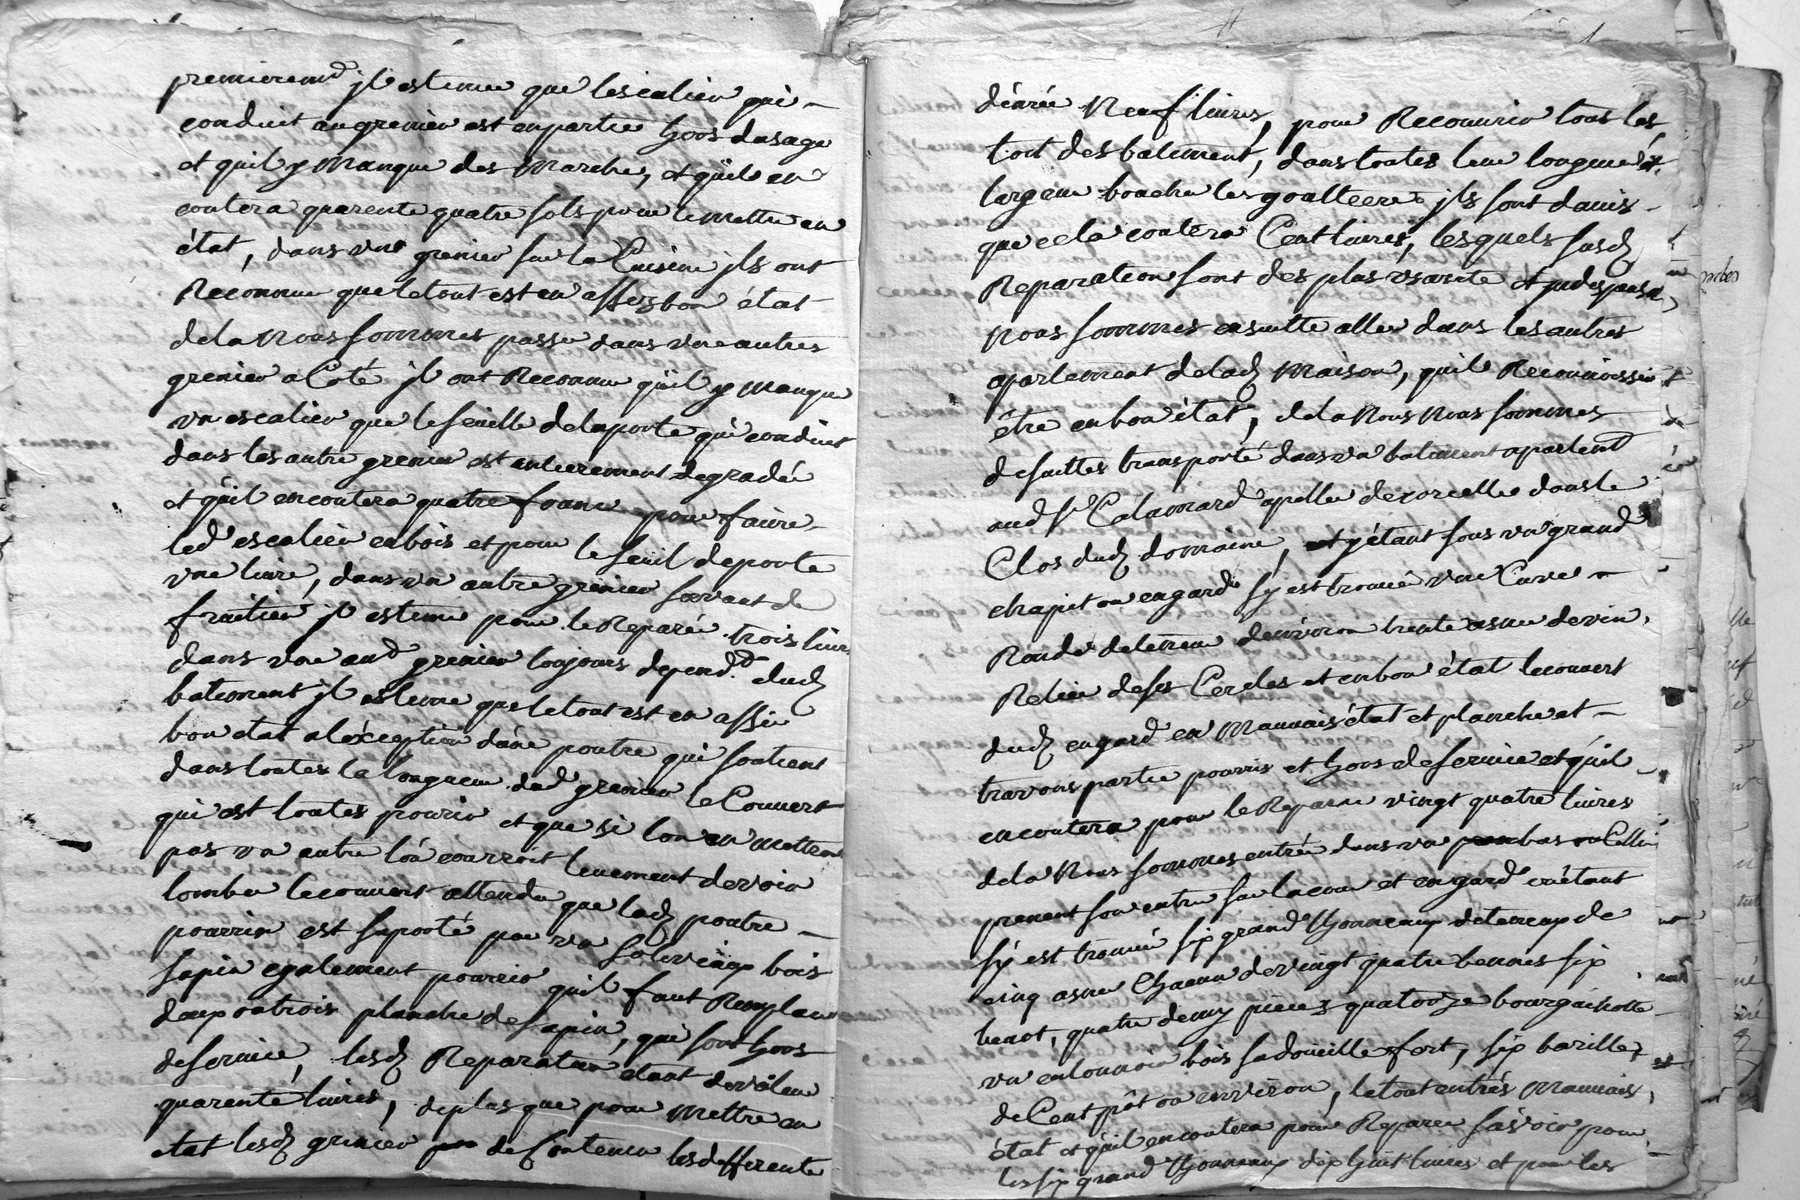 premieremt jl estime que lescalier qui
conduit augrenier est enpartie hors dusage
et quil y Manque des Marche, et quil en
coutera quarente quatre sols pour le mettre en
état, dans vne grenier sur la Cuisine jls ont
Reconnue que letout est en assez bon état
dela Nous sommes passe dans vne autres
grenier a Coté jl ont Reconnue quil y manque
vn escalier que le seuille delaporte qui conduit
dans les autre grenier est entierement degradé
et quil encoutera quatre franc pour faire
led escalier enbois et pour le seuil deporte
vne livre, dans vn autre grenier servant de
fruitier jl estime pour le Reparé trois livre
dans vne aud grenier toujours depend.t dud
batiment jl estime que letout est en assé
bon etat aléxception dune poutre qui soutient
dans toutes la longueur dud grenier le Couvert
qui est toutes pourrie et que si lon en mettroit
pas vn autre lon courroit de voir
tomber lecouvert attendu que lad poutre
pourrie est suporté par vn bois
sapin egalement pourrie quil faut Remplacer
deux outrois planche de sapin, qui sont hors
deservice, lesd Reparation étant devaleur
quarente livres, deplus que pour Mettre en
etat lesd grenier de les differente
denrée Neuf livres, pour Recouvrir tous les
toit des batiment, dans toutes leur longueur et
largeur boucher les goutteere jls sont davis
que cela coutera Cent livres, lesquels susd
Reparation sont des plus vrante et jndispensa
Nous sommes ensuitte aller dans les autres
apartement delad Maison, quil Reconnoissent
être enbon état, dela Nous Nous sommes
desuittes transporté dans vn batiment apartent
aud sr Calamard apeller dans le
Clos dud domaine, et y étant sous vn grand
chapit ou engard sy est trouvé vne Cuve
Ronde detenue denviron trente asnee devin,
Relier deses Cercles et enbon état lecouvert
dud engard en Mauvais état et planche et
travons partie pourris et hors deservice et quil
encoutera pour le Reparer vingt quatre livres
dela Nous sommes entrée dans vn bas ou Cellier
prenent son entrée sur lacour et engard enétant
sy est trouvé six grand thonneaux detenuex de
cinq asnee Chacun devingt quatre bennes six
benot, quatre demy pieces quatorze
vn entonnoir bois sadouille fort, six barille
de Cent pôt ou environ, letout entrés Mauvais,
état et quil encoutera pour Reparer sávoir pour
les six grand thonneaux dix huit livres et pour les